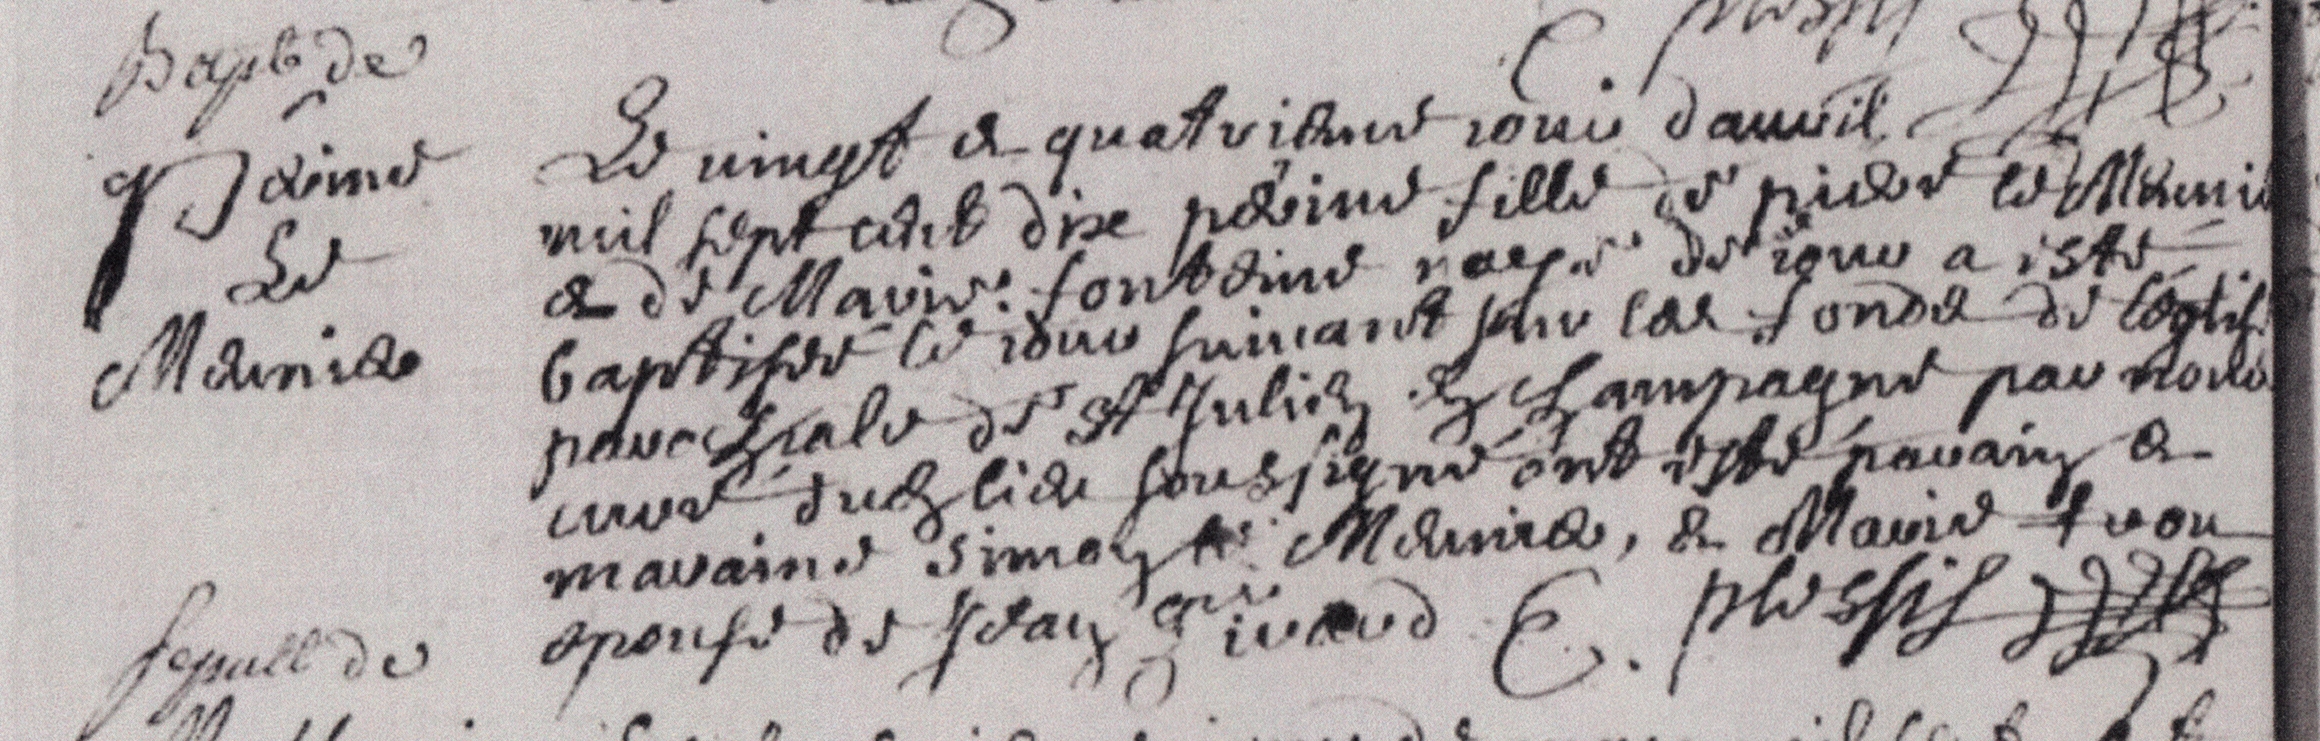 Bapt de
Perine
Le
Meunier
Le vingt & quatrieme jour d'auril
mil sept cent dix perine fille de pierre le Meuni
& de Marie fonteine nayé de jour a esté
baptisée le jour suivant sur les fonds de l'eglis
parochiale de st Julien en champagne par nous
curé dud lieu soussigné ont esté parain &
maraine simon Meunier, & Marie
epouse de Jean C. plessis
sepult de